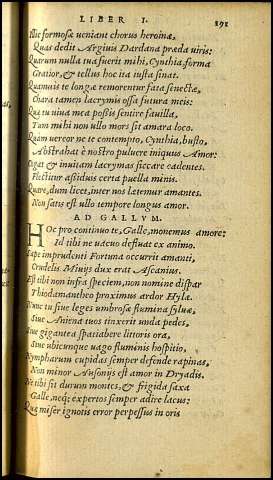 LIBER I. 191
Illic formosæ ueniant chorus heroinæ,
Quas dedit Argiuis Dardana præda uiris:
Quarum nulla tua fuerit mihi, Cynthia, forma
Gratior, & tellus hoc ita iusta sinat.
Quamuis te longæ remorentur fata senectæ,
Chara tamen lacrymis ossa futura meis:
Quæ tu uiua mea possis sentire fauilla,
Tum mihi non ullo mors sit amara loco.
Quàm uereor ne te contempto, Cynthia, busto,
Abstrahat è nostro puluere iniquus Amor:
Cogat & inuitam lacrymas siccare cadentes.
Flectitur assiduis certa puella minis.
Quare, dum licet, inter nos lætemur amantes.
Non satis est ullo tempore longus amor.
AD GALLVM.
HOc pro continuo te, Galle, monemus amore:
Id tibi ne uacuo defluat ex animo.
Sæpe imprudenti Fortuna occurrit amanti,
Crudelis Minyis dux erat Ascanius.
Est tibi non infra speciem, non nomine dispar
Thiodamanteo proximus ardor Hylæ.
Nunc tu siue leges umbrosæ flumina syluæ,
Siue Aniena tuos tinxerit unda pedes,
Siue gigantea spatiabere littoris ora,
Siue ubicunque uago fluminis hospitio,
Nympharum cupidas semper defende rapinas,
Non minor Ausonijs est amor in Dryadis.
Ne tibi sit durum montes, & frigida saxa
Galle, neq; expertos semper adire lacus:
Quæ miser ignotis error perpessus in oris